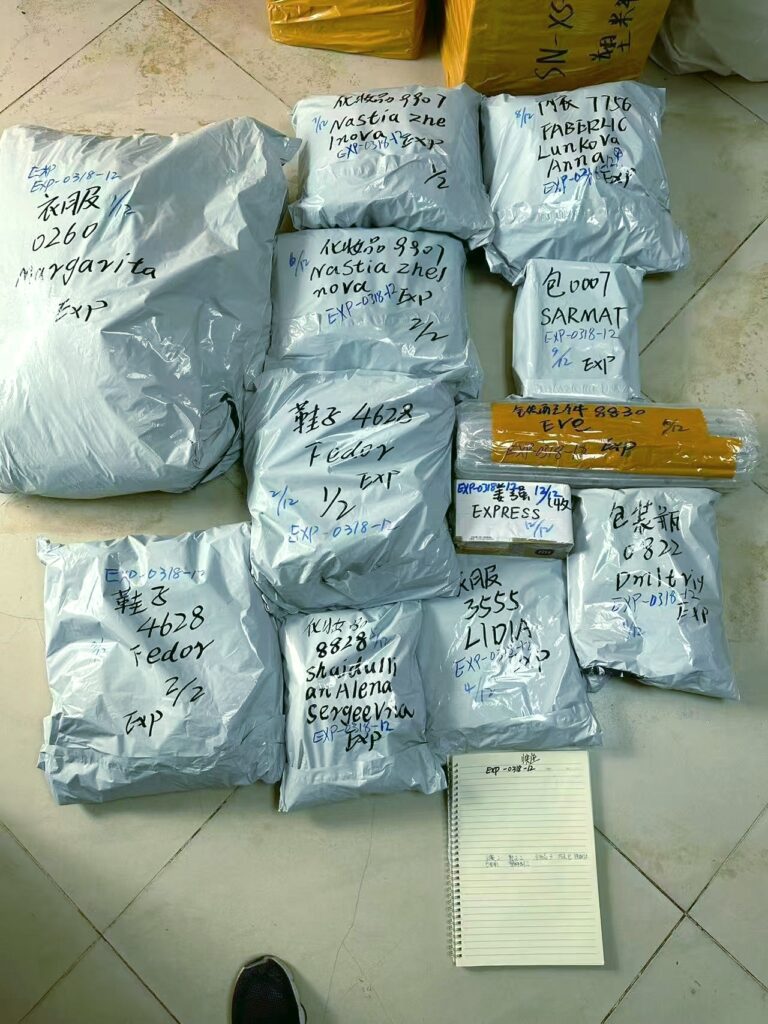 SN-XS
EXP
EXP-0318-12
衣服 1/12
0260
Margarita
Exp
化妆品 9907
7/12 Nastia zhe
lnova Exp
EXP-0318-12
1/2
8/12 内衣 7756
FABERLIC
Lunkova
Anna
Exp
化妆品 9907
6/12 Nastia zhel
nova Exp
EXP-0318-12
2/2
包0007
SARMAT
EXP-0318-12
9/12 Exp
鞋子 4628
Fedor
Exp
2/12 1/2
EXP-0318-12
8830
Eve
Exp
EXP-0318-12 12/12
EXPRESS
包装瓶
0822
Dmitriy
EXP-0318-12
Exp
EXP-0318-12
鞋子
4628
Fedor
2/2
Exp
化妆品
8828
Shaidulli
an Alena
Sergeevna
EXP-0318-12
Exp
衣服
3555
LIDIA
EXP-0318-12
4/12
EXP-0318-12